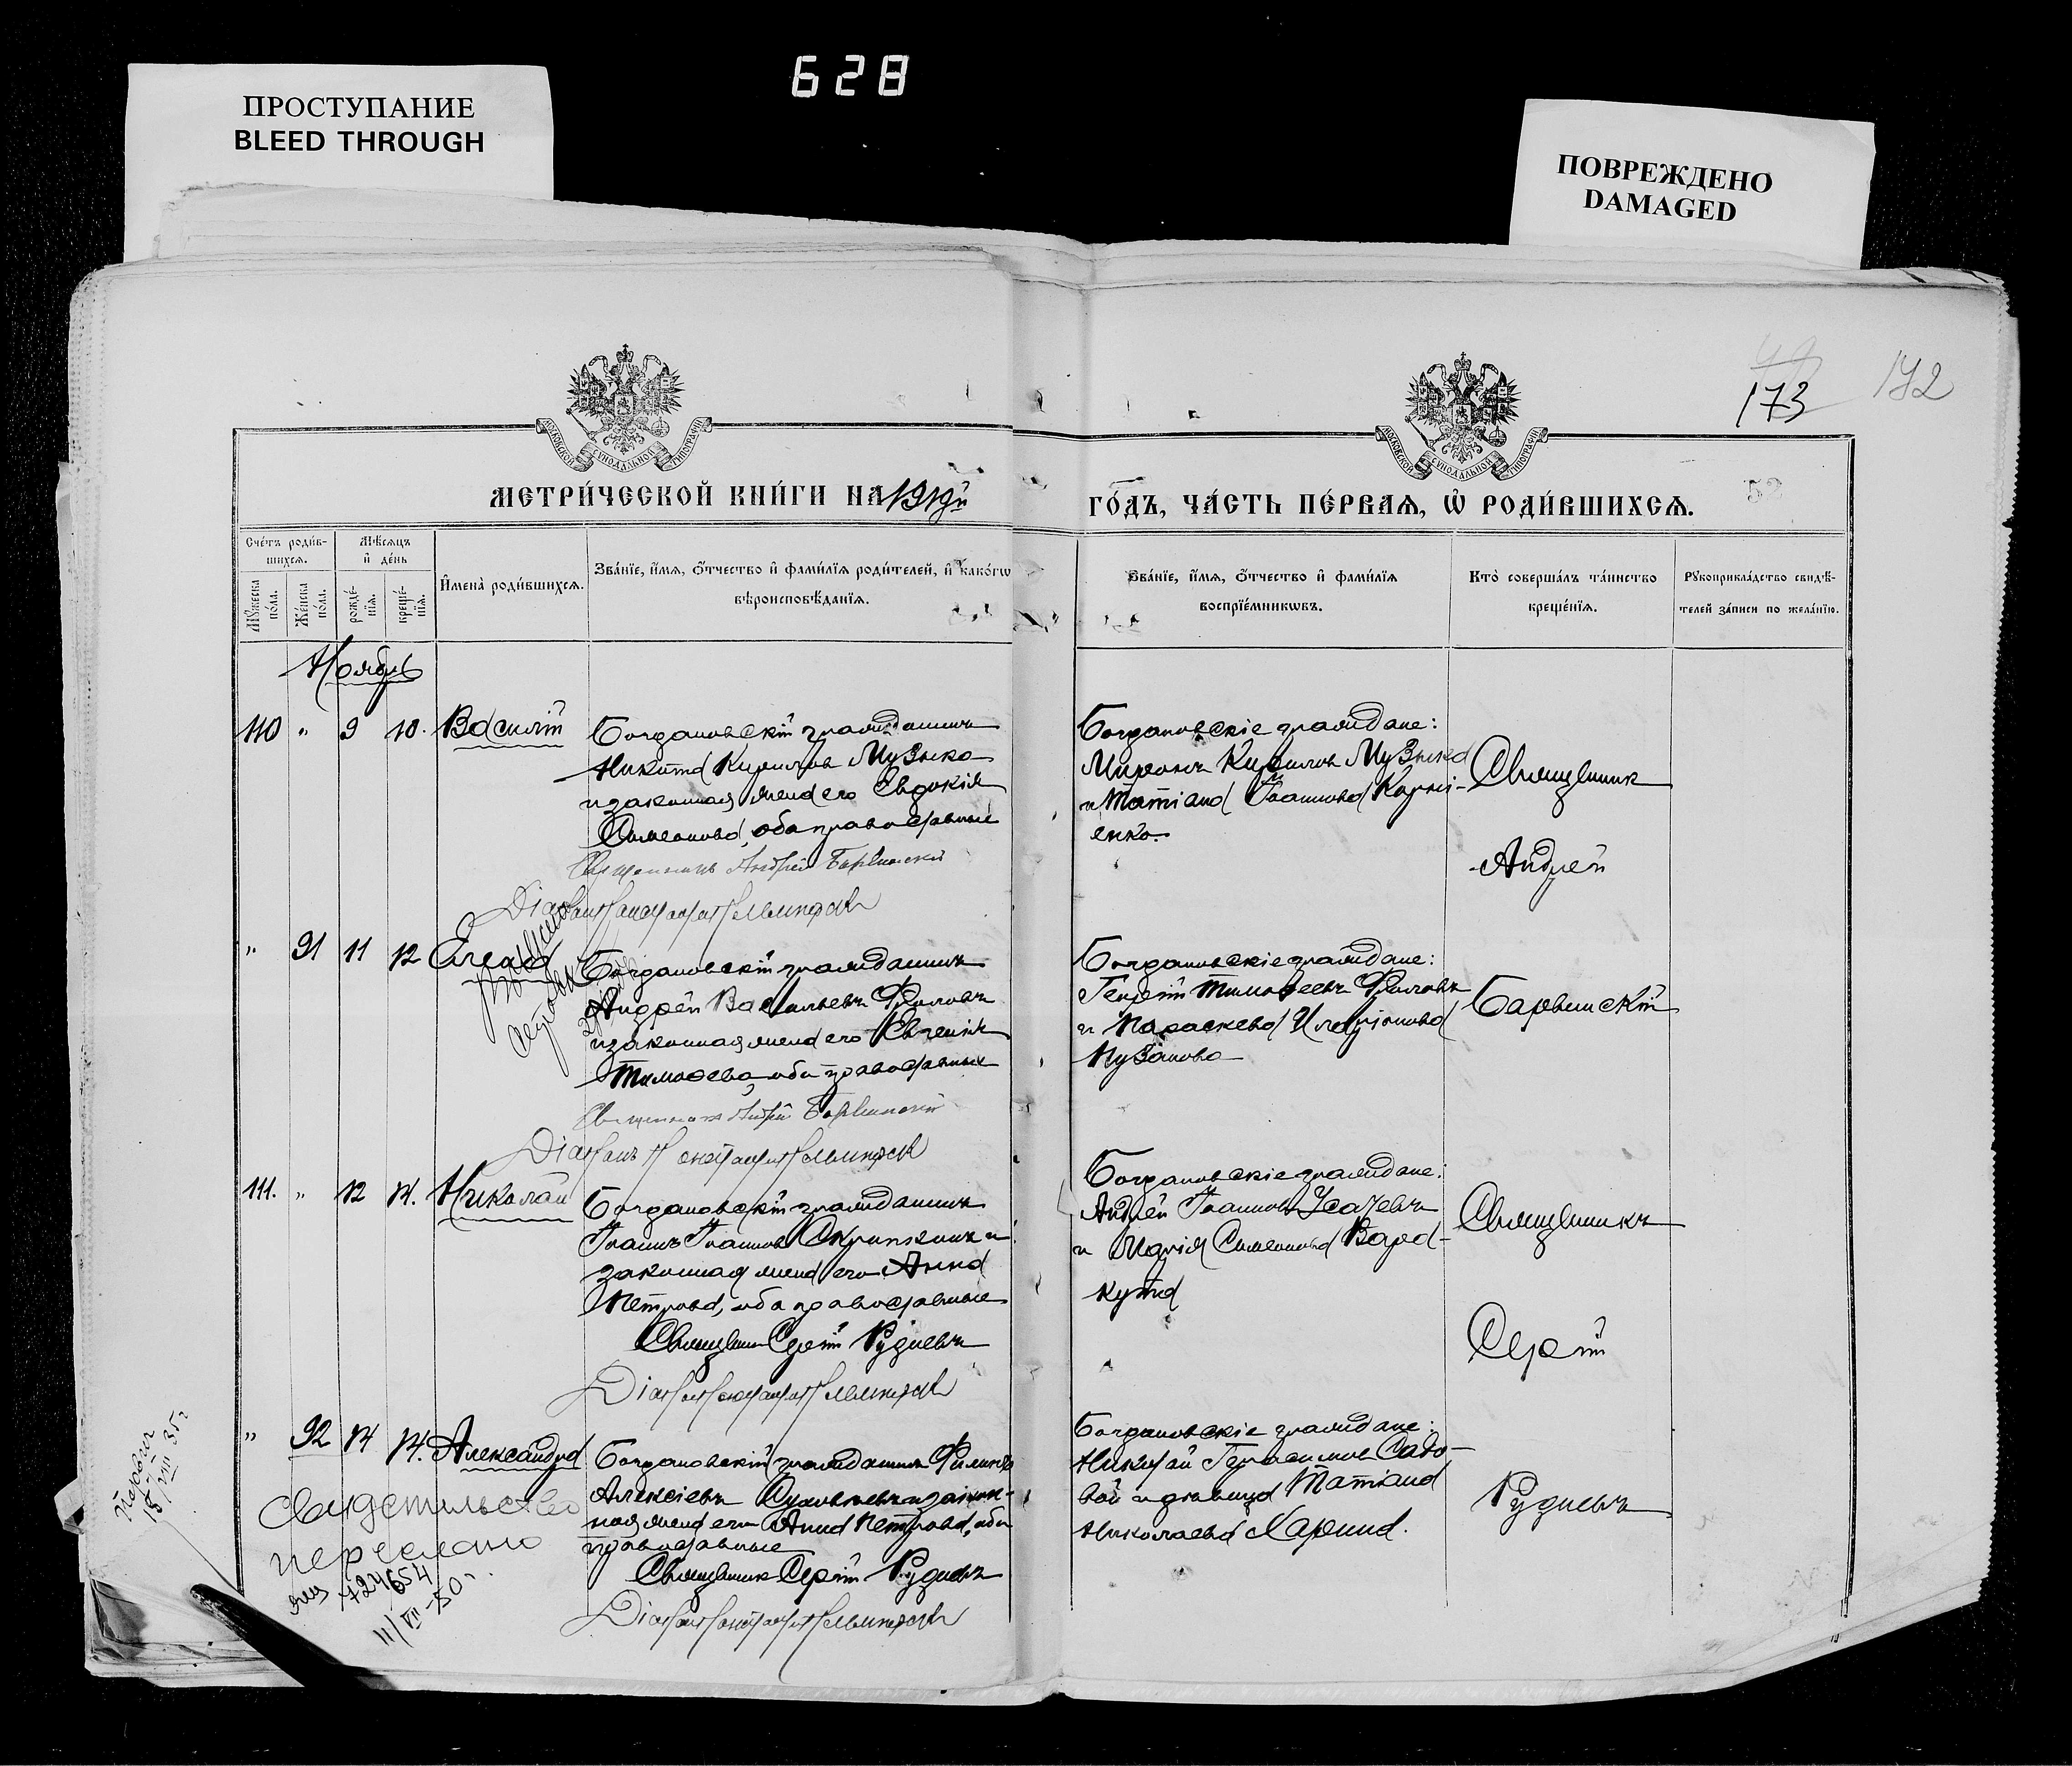 628
ПРОСТУПАНИЕ
BLEED THROUGH
ПОВРЕЖДЕНО
DAMAGED
173
172
МОСКОВСКОЙ СѴНОДАЛЬНОЙ ТИПОГРАФІИ
МОСКОВСКОЙ СѴНОДАЛЬНОЙ ТИПОГРАФІИ
МЕТРИ́ЧЕСКОЙ КНИ́ГИ НА 1919й
ГО́ДЪ, ЧА́СТЬ ПЕ́РВАЯ, Ѡ РОДИ́ВШИХСЯ.
52
Сче́тъ роди́в-
шихся.
Мѣ́сяцъ
и де́нь
Му́жеска
по́ла.
Же́нска
по́ла.
рожде́-
нїя.
креще́-
нїя.
И҆мена̀ роди́вшихся.
Зва́нїе, и҆́мя, ѻ҆́тчество и҆ фами́лїя роди́телей, и҆ како́гѡ
вѣроисповѣ́данїя.
Зва́нїе, и҆́мя, ѻ҆́тчество и҆ фами́лїя
воспрїе́мникѡвъ.
Кто̀ соверша́лъ та́инство
креще́нїя.
Рꙋкоприкла́дство свидѣ́-
телей за́писи по жела́нїю.
Ноябрь
110 " 9 10. Василій
Богдановскій гражданинъ
Никита Кирилов Музыка
и законная жена его Евдокія
Симеонова, оба православные
Священникъ Андрей Барвинскій
Богдановскіе граждане:
Миронъ Кирилов Музыка
и Татіана Іоаннова Корні-
енко.
Священник
Андрей
" 91 11 12 Елена
Богдановскій гражданинъ
Андрей Васильевъ Фроловъ
и законная жена его Евгенія
Тимофеева, оба православные
Священникъ Андрей Барвинскій
Богдановскіе граждане:
Георгій Тимофеевъ Фроловъ
и Параскева Иларіонова
Пузанова
Барвинскій
111. " 12 14. Николай
Богдановскій гражданинъ
Іоаннъ Іоаннов Скрипник и
законная жена его Анна
Петрова, оба православные
Священник Сергій Рудневъ
Богдановскіе граждане:
Андрей Іоаннов Усачевъ
и Марія Симеонова Вара-
кута
Священникъ
Сергій
" 92 14 14. Александра
Богдановскій гражданин Филипъ
Алексіевъ и закон-
ная жена его Анна Петрова, оба
православные
Священник Сергій Рудневъ
Богдановскіе граждане:
Николай Герасимов Садо-
вой и девица Татіана
Николаева Харина.
Рудневъ
свидетельство
переслано
724654
11/VII-50г.
15/VIII 35г